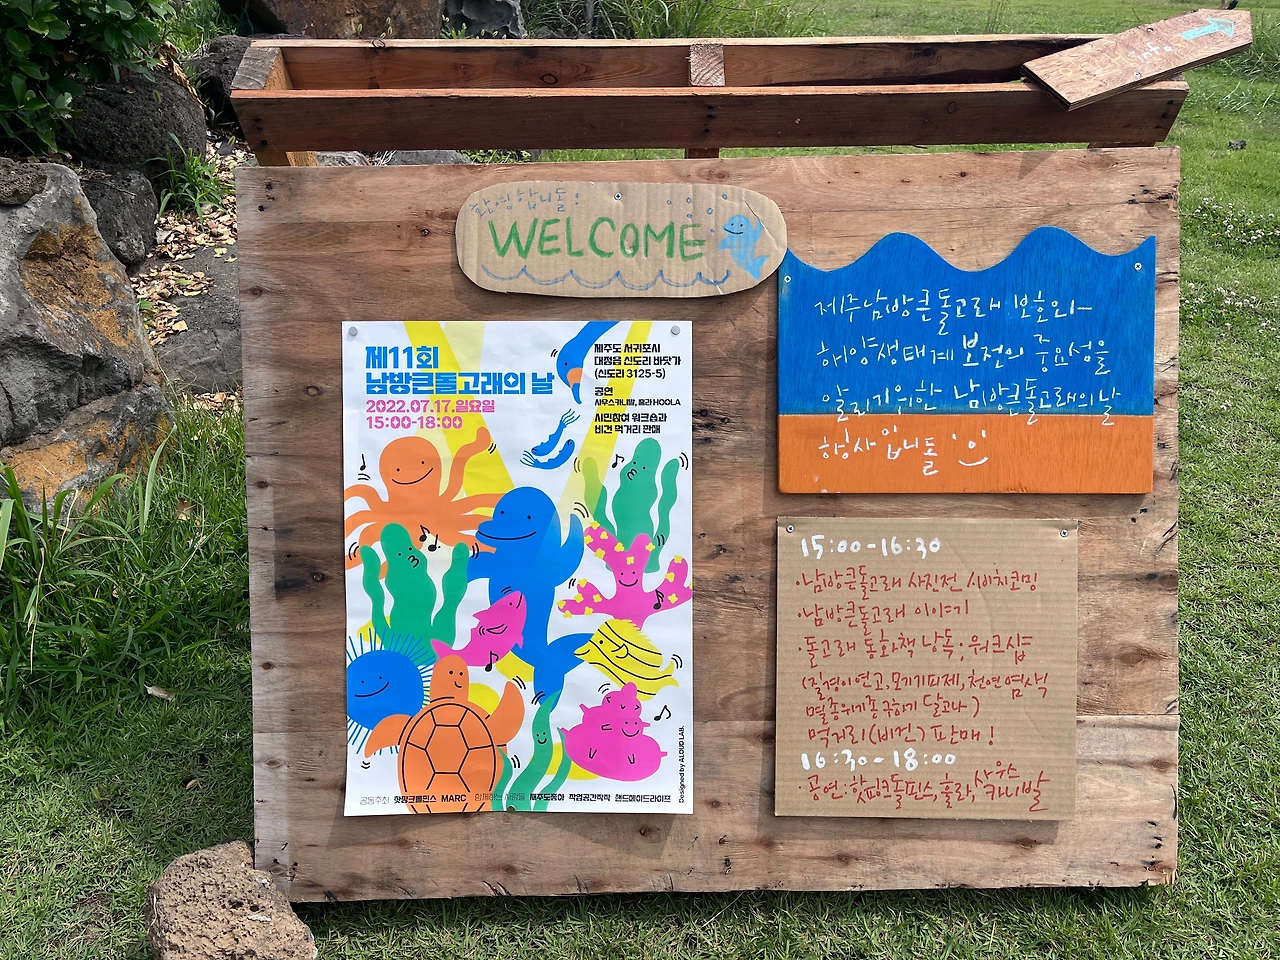 info
환영합니돌!
WELCOME
제11회
남방큰돌고래의 날
2022.07.17.일요일
15:00-18:00
제주도 서귀포시
대정읍 신도리 바닷가
(신도리 3125-5)
공연
사우스카니발, 훌라 HOOLA
시민참여 워크숍과
비건 먹거리 판매
공동주최 핫핑크돌핀스 MARC 함께하는 사람들 제주도좋아 작업공간작작 핸드메이드라이프
Designed by ALOUD LAB.
제주남방큰돌고래 보호와
해양생태계 보전의 중요성을
알리기위한 남방큰돌고래의날
행사입니돌
15:00-16:30
·남방큰돌고래 사진전 시바치코밍
·남방큰돌고래 이야기
·돌고래 동화책 낭독, 워크숍
(질경이연고, 모기기피제, 천연염색
멸종위기종 구하기 달고나)
먹거리(비건) 판매!
16:30-18:00
·공연: 핫핑크돌핀스, 훌라, 사우스
카니발